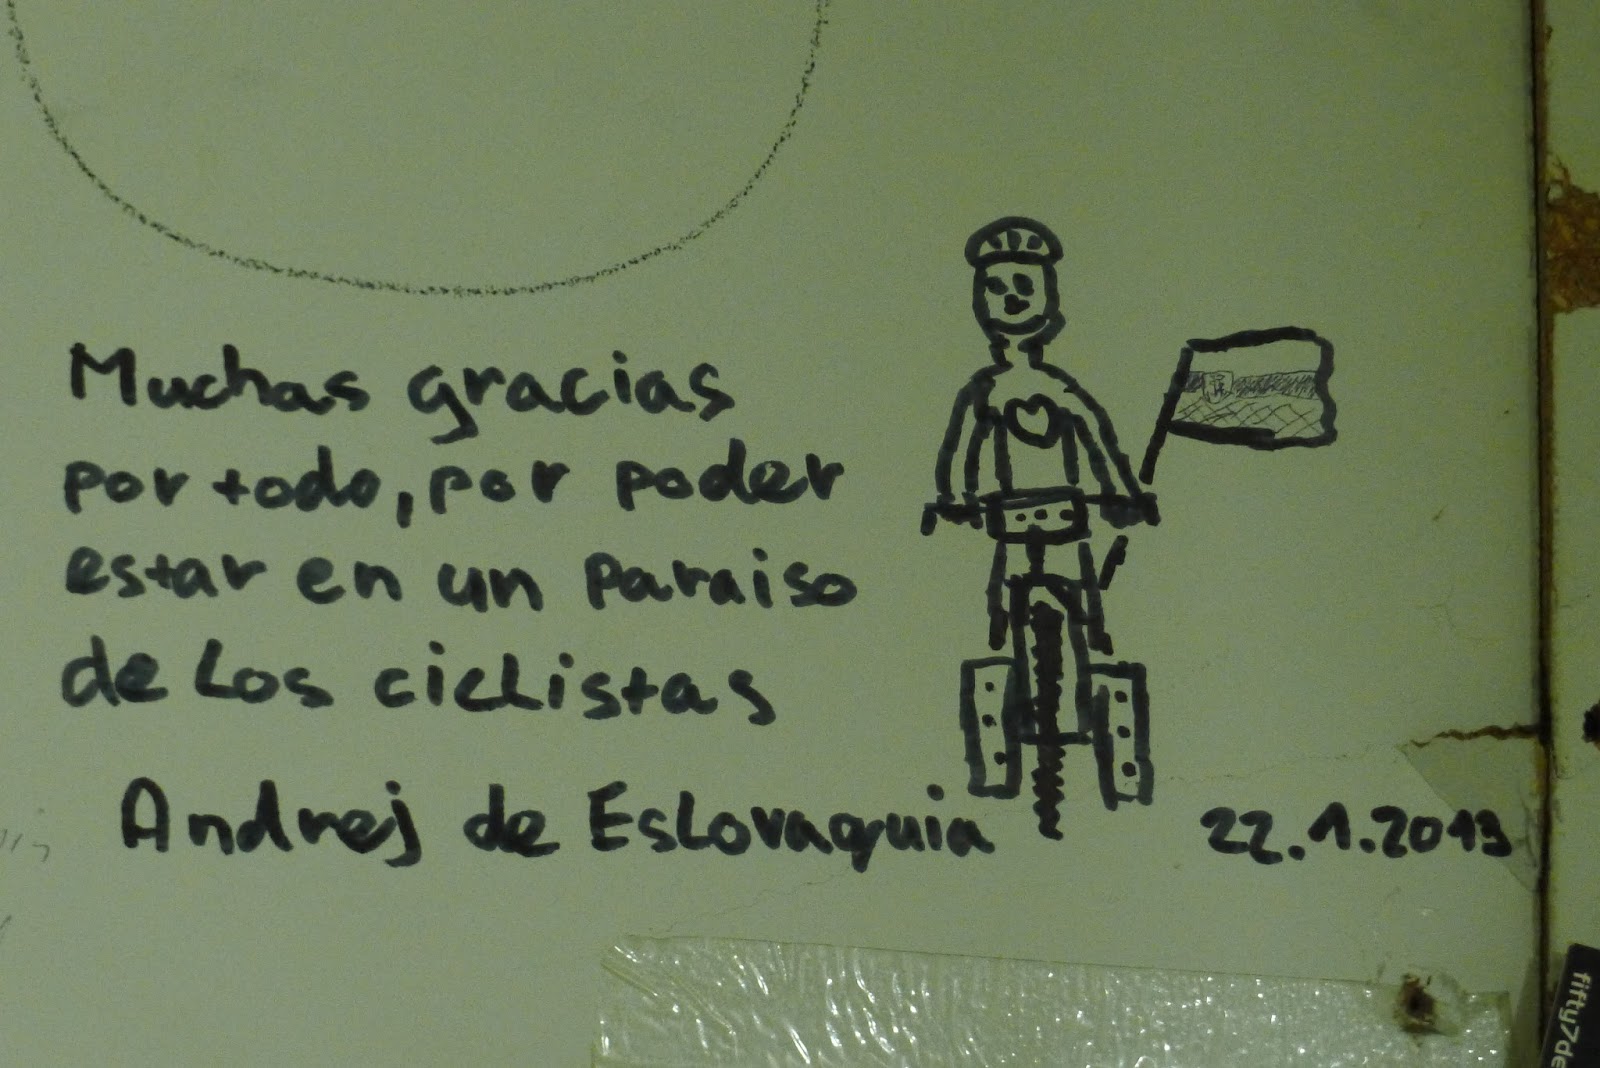 Muchas gracias
por todo, por poder
estar en un paraiso
de Los ciclistas
Andrej de Eslovaquia 22.1.2013
fifty7de